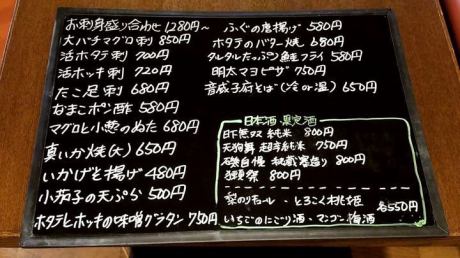 お刺身盛り合わせ 1280円~
大バチマグロ刺 850円
活ホタテ刺 700円
活ホッキ刺 720円
たこ足刺 680円
なまこポン酢 580円
マグロと小葱のぬた 680円
真いか焼(大) 650円
いかげそ揚げ 480円
小茄子の天ぷら 500円
ホタテとホッキの味噌グラタン 750円
ふぐの唐揚げ 580円
ホタテのバター焼 680円
タルタルたっぷり鮭フライ 580円
明太マヨピザ 750円
音威子府そば(冷or温) 650円
日本酒 限定酒
純米 800円
天狗舞 超辛純米 750円
磯自慢 秘蔵寒造り 800円
獺祭 800円
梨のリキュール・とろこく桃姫 各550円
いちごのにごり酒・マンゴー梅酒